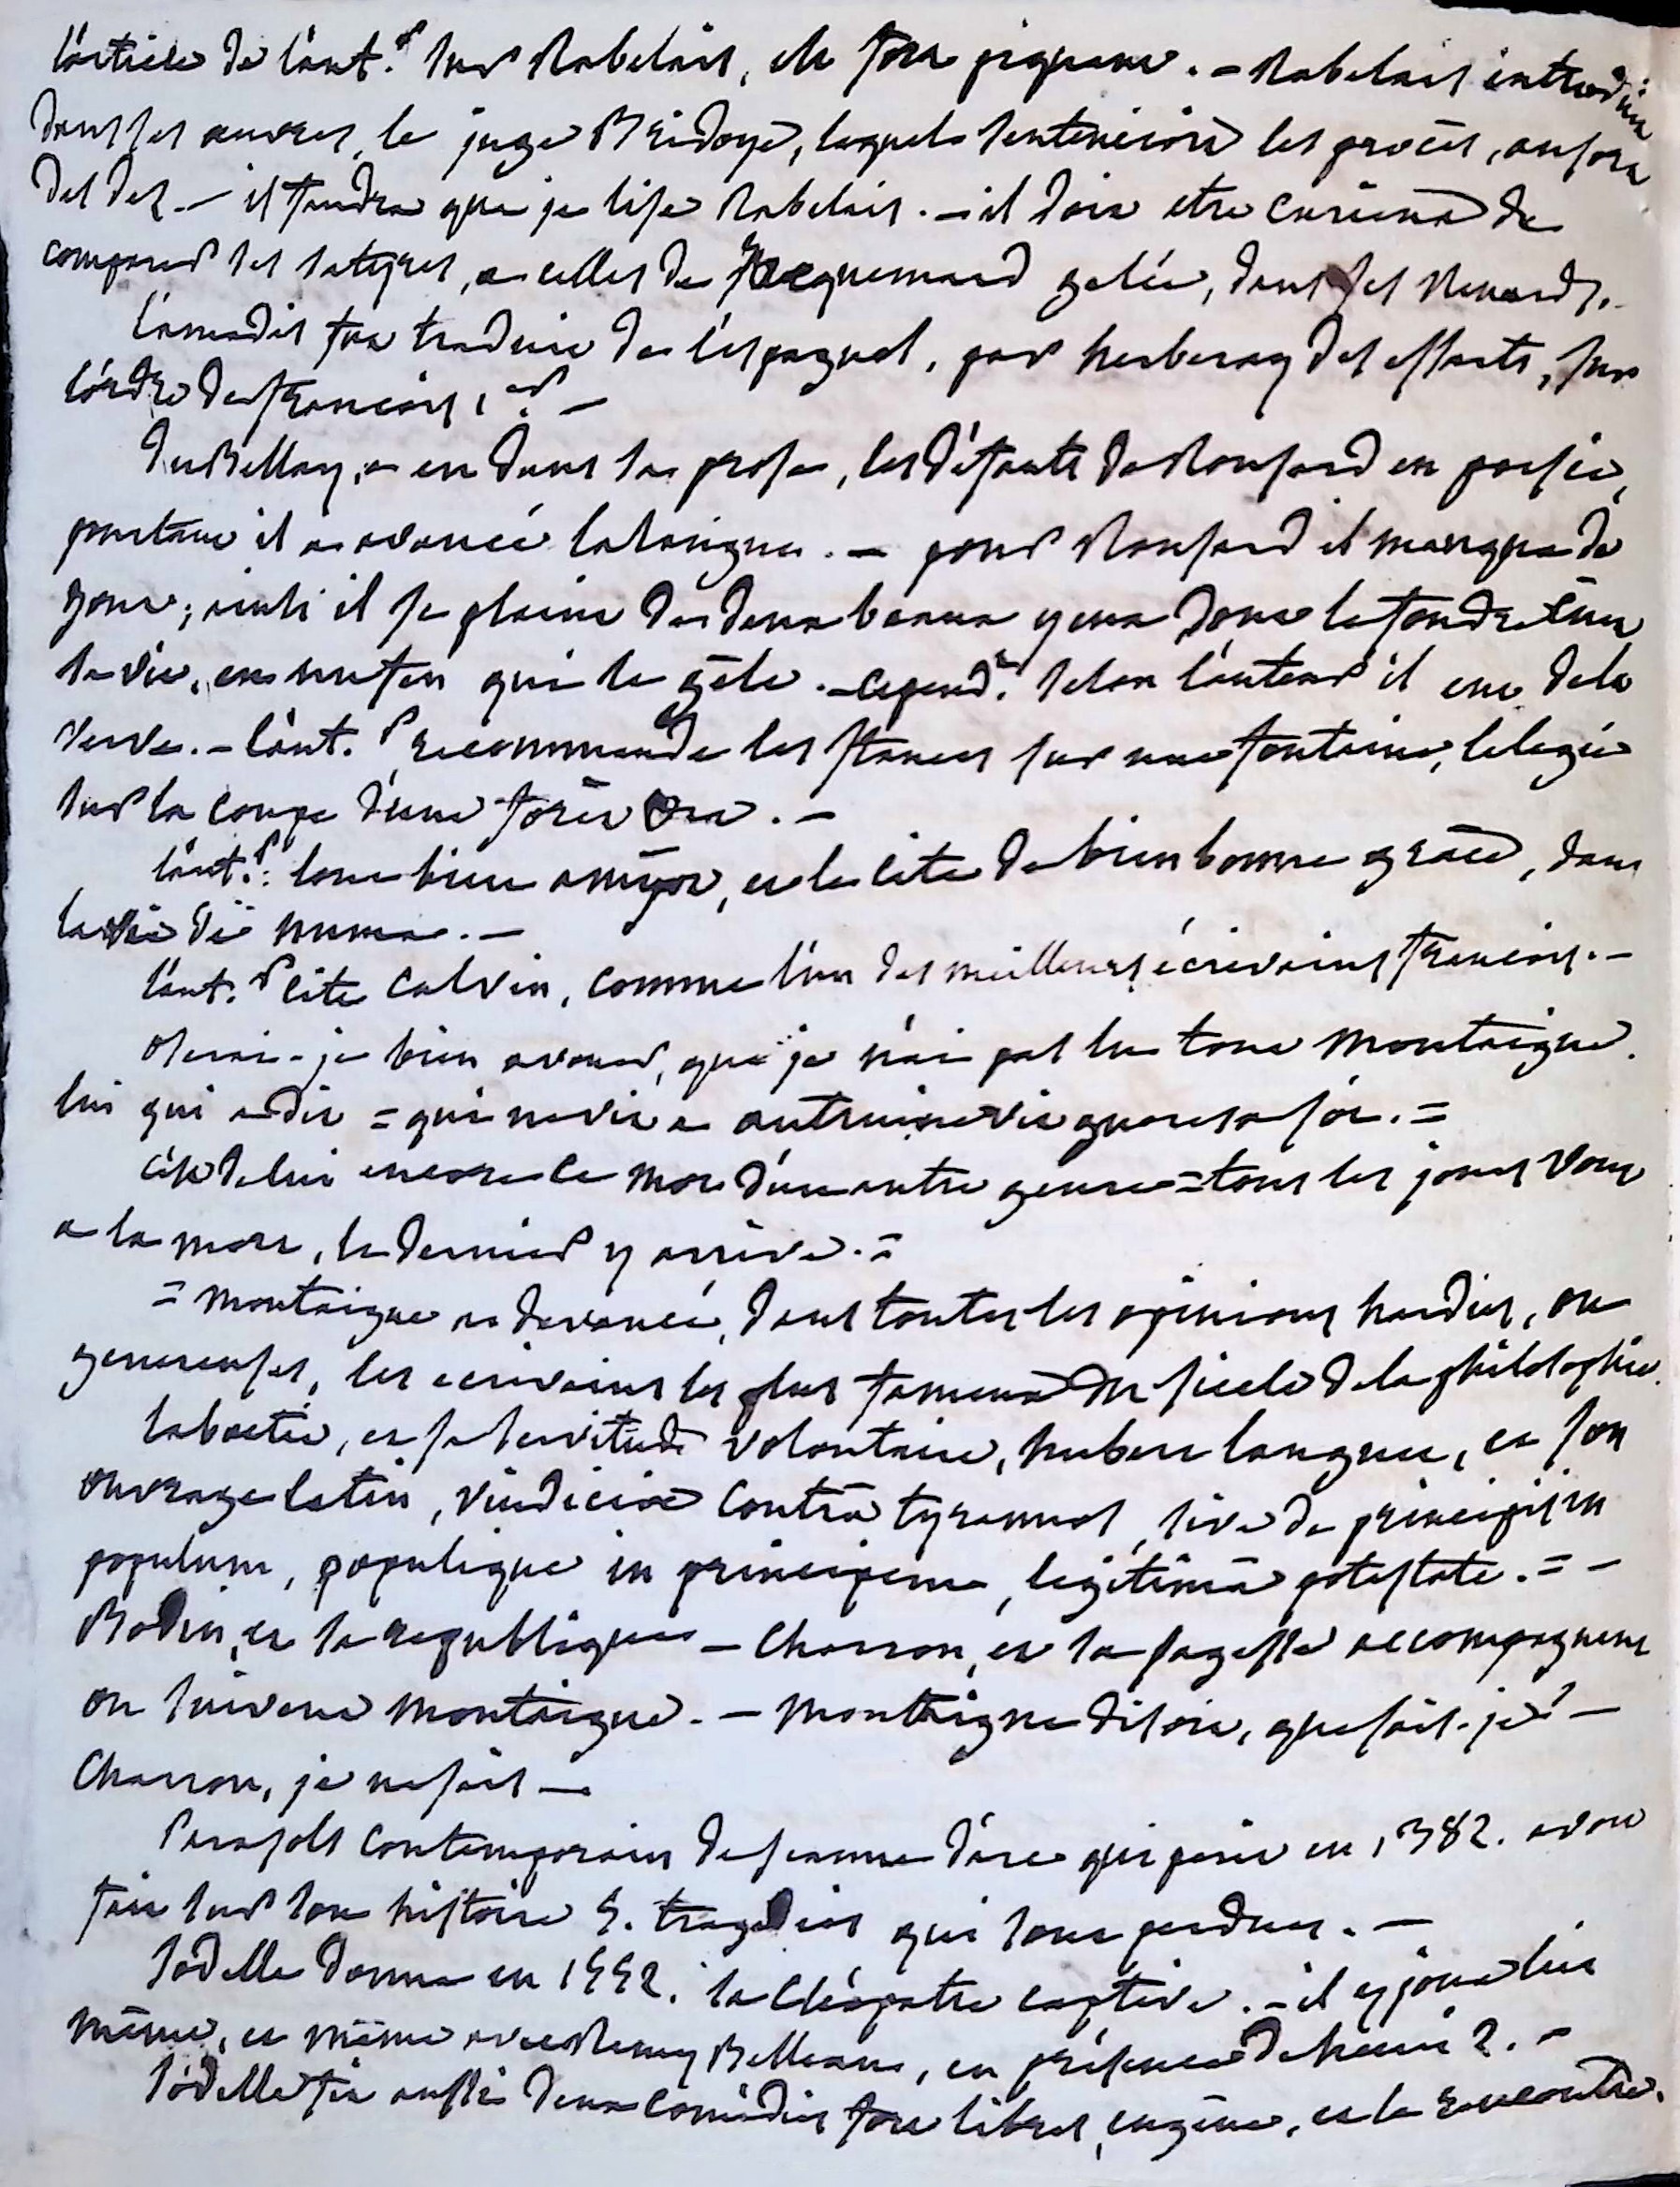 l'article de l'aut.r sur Rabelais, est fort piquant. - Rabelais introduit
dans ses œuvres, le juge Bridoye, lequel sentencioit les procès, au sort
des dez. - il faudra que je lise Rabelais. - il doit etre curieux de
comparer ses satyres, a celles de Jacquemard gelée, dans ses Renards.
l'amadis fut traduit de l'espagnol, par herberay des essarts, sur
l'ordre de françois 1.er -
du Bellay, a eu dans sa prose, les défauts de Ronsard en poesie,
pourtant il a avancé la langue. - pour Ronsard il manqua de
gout; ainsi il se plaint de deux beaux yeux dont la foudre
sa vie, en un feu qui le gèle. - cepend.t selon l'auteur il eut de la
verve. - l'aut.r recommande les stances sur une fontaine, l'elegie
sur la coupe d'une forêt &ca. -
l'aut.r loue bien amyot, et le cite de bien bonne grace, dans
la vie de numa. -
l'aut.r cite Calvin, comme l'un des meilleurs écrivains françois. -
oserai-je bien avouer, que je n'ai pas lu tout Montaigne.
lui qui a dit = qui ne vit a autrui ne vit gueres a soi. =
c'est de lui encore ce mot d'un autre genre = tous les jours vont
a la mort, le dernier y arrive. =
= Montaigne a devancé, dans toutes les opinions hardies, ou
genereuses, les ecrivains les plus fameux du siecle de la philosophie.
laboetie, et sa servitude volontaire, hubert languet, et son
ouvrage latin, vindiciæ contra tyrannos, sive de principis in
populum, populique in principem, legitimâ potestate. = -
Bodin, et sa republique - Charron, et sa sagesse accompagnent
ou suivent Montaigne. - Montaigne disoit, que sais-je? -
Charron, je ne sais -
Parasols contemporain de jeanne d'arc qui périt en 1382. avoit
fait sur son histoire 5. tragedies qui sont perdues. -
Jodelle donna en 1552. sa Cléopatre captive. - il y joua lui
même, et même avec Remy Belleau, en présence de henri 2. -
Jodelle fit aussi deux comédies fort libres, eugène, et la rencontre.